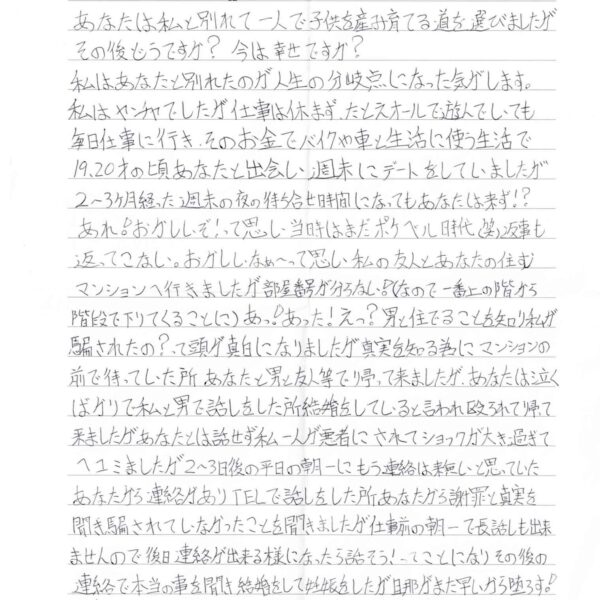 あなたは私と別れて一人で子供を産み育てる道を選びましたが
その後どうですか？ 今は幸せですか？
私はあなたと別れたのが人生の分岐点になった気がします。
私はヤンチャでしたが仕事は休まず、たとえオールで遊んでいても
毎日仕事に行き、そのお金でバイクや車と生活に使う生活で
19、20才の頃あなたと出会い、週末にデートをしていましたが
2〜3ヶ月経った週末の夜の待ち合せ時間になってもあなたは来ず!?
あれ？おかしいぞ！って思い当時はまだポケベル時代(笑)返事も
返ってこない。おかしいなぁ〜って思い私の友人とあなたの住む
マンションへ行きましたが部屋番号が分らない！(なので一番上の階から
階段で下りてくることに)あっ！あった！えっ？男と住でることを知り私が
騙されたの？って頭が真白になりましたが真実を知る為にマンションの
前で待っていた所、あなたと男と友人等で帰って来ましたが、あなたは泣く
ばかりで私と男で話しをした所結婚をしていると言われ殴られて帰って
来ましたがあなたとは話せず私一人が悪者にされてショックが大き過ぎて
ヘコミましたが2〜3日後の平日の朝一にもう連絡は来無いと思っていた
あなたから連絡がありTELで話しをした所あなたから謝罪と真実を
聞き騙されていなかったことを聞きましたが仕事前の朝一で長話しも出来
ませんので後日連絡が出来る様になったら話そう！ってことになりその後の
連絡で本当の事を聞き結婚をして妊娠をしたが旦那がまだ早いから堕ろす！